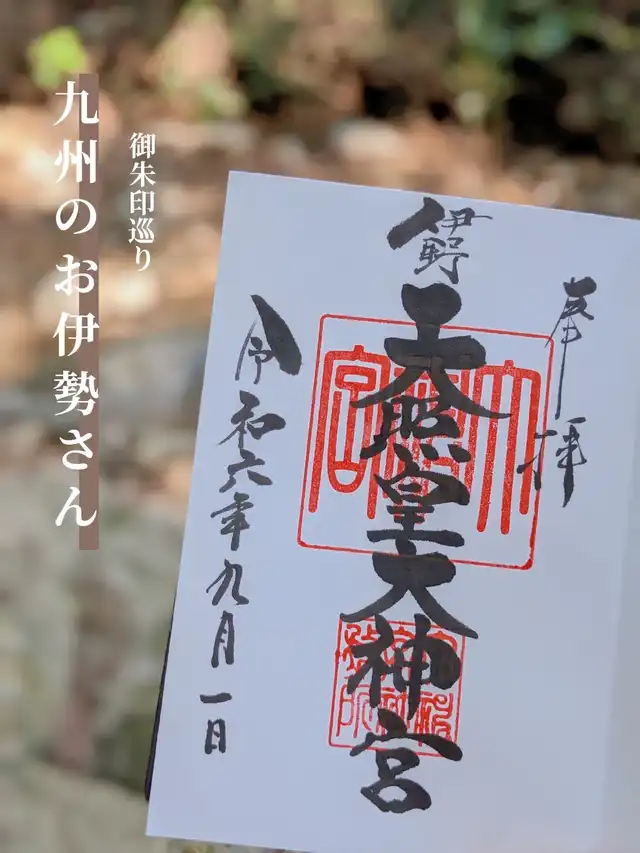 御朱印巡り
九州のお伊勢さん
奉拝
伊野
天照皇大神宮
令和六年九月一日